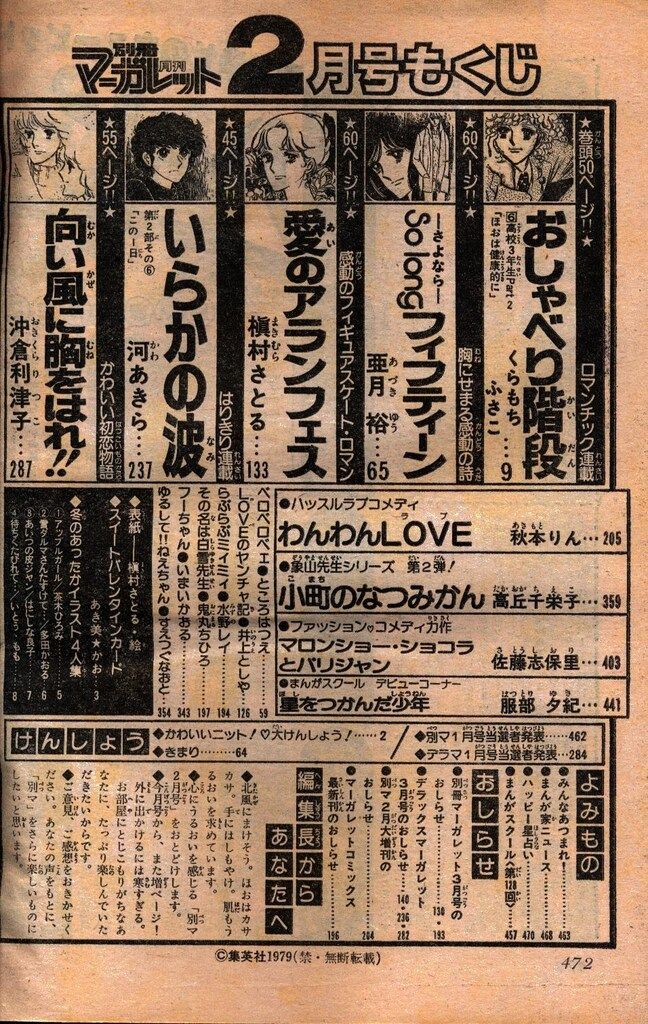 別冊
マーガレット
月刊
2月号もくじ
★巻頭50ページ!!★
ロマンチック連載
おしゃべり階段
⑥高校3年生Part2
「ほおは健康的に」
くらもちふさこ…9
★60ページ!!★
胸にせまる感動の詩
―さよなら―
So longフィフティーン
亜月裕…65
★60ページ!!★
感動のフィギュアスケート・ロマン
愛のアランフェス
槇村さとる…133
★45ページ!!★
はりきり連載
いらかの波
第2部その⑥
「この一日」
河あきら…237
★55ページ!!★
かわいい初恋物語
向い風に胸をはれ!!
沖倉利津子…287
●ハッスルラブコメディ
わんわんLOVE 秋本りん…205
●象山先生シリーズ 第2弾!
小町のなつみかん 高丘千栄子…359
●ファッション♡コメディ力作
マロンショー・ショコラ
とパリジャン 佐藤志保里…403
●まんがスクール デビューコーナー
星をつかんだ少年 服部夕紀…441
ペロペロペエ●ところはつえ 59
LOVEのヤンチャ記●井上としや 126
らぶらぶミィミィ●水野レイ 194
その名は白墨先生●鬼丸ちひろ 197
フーちゃん●いまいかおる 343
ゆるして!!ねえちゃん●すえつぐなおと 354
◆表紙―槇村さとる・絵
◆スイートバレンタインカード
あき美★かお 3
◆冬のあったかイラスト4人集
①アップルガール/茶木ひろみ 5
②雪ダルマさんたすけて/多田かおる 6
③あいつの皮ジャン/はにしな良子 7
④待ちくたびれて/いとう・もも 8
けんしょう
◆かわいいニット!♡大けんしょう!…2
◆きまり…64
◆別マ1月号当選者発表…462
◆デラマ1月号当選者発表…284
よみもの
●みんなあつまれ! 463
●まんが家ニュース 468
●ハッピー星占い 470
●まんがスクール〈第128回〉 457
おしらせ
●別冊マーガレット3月号の
おしらせ 130・193
●デラックスマーガレット
3月号のおしらせ 140・236・282
●別マ2月大増刊の
おしらせ 204
●マーガレットコミックス
最新刊のおしらせ 196
編集長から
あなたへ
◆北風にまけそう。ほおはカサ
カサ、手にはしもやけ。肌もう
るおいを求めています。
◆心にうるおいを感じる「別マ
2月号」をおとどけします。
◆今月号から、また増ページ!
外に出かけるには寒すぎる。
お部屋にとじこもりがちなあ
なたに、たっぷり楽しんでいた
だきたいからです。
◆ご意見、ご感想をおきかせく
ださい。あなたの声をもとに、
「別マ」をさらに楽しいものに
したいと思います。
©集英社1979(禁・無断転載)
472